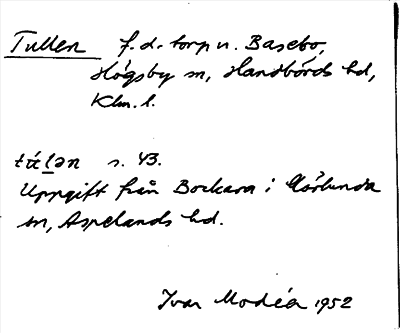 Tullen f.d. torp u. Basebo,
Högsby sn, Handbörds hd,
Klm. l.
s. 43.
Uppgift från Bockara i Mörlunda
sn, Aspelands hd.
Ivar Modéer 1952